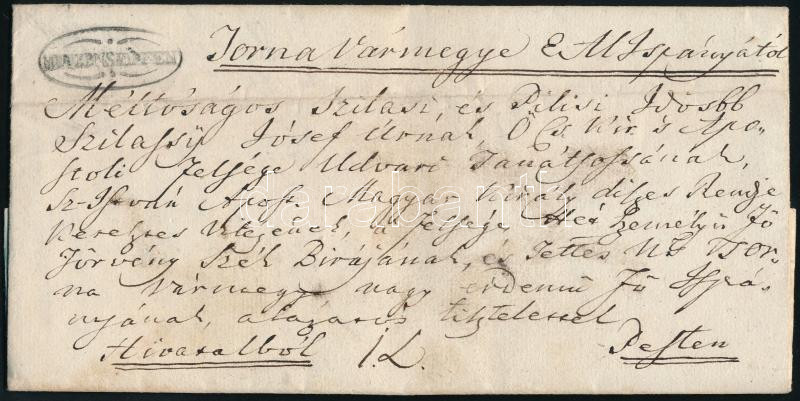 Torna Vármegye E Al Ispányától
MIHÁLYI
Méltóságos Szilasi, és Pilisi Idösbb
Szilassÿ Jósef Urnak Ö Cs. Kir. s Apo-
stoli Felsége Udvari Tanátsossának,
Sz. István Apost. Magyar Király diszes Rendje
Keresztes Vitézének, a Felséges Hét Személyü Fö
Törvény Szék Birájának, és Tettes Ns Tor-
na Vármegye nagy érdemü Fö Ispá-
nyának, alázatos tisztelettel
Hivatalból I. L. Pesten
darabanth